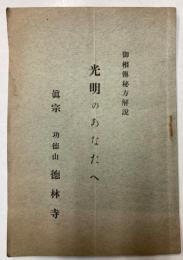 御相傳秘方解説
光明のあなたへ
眞宗 功徳山 徳林寺